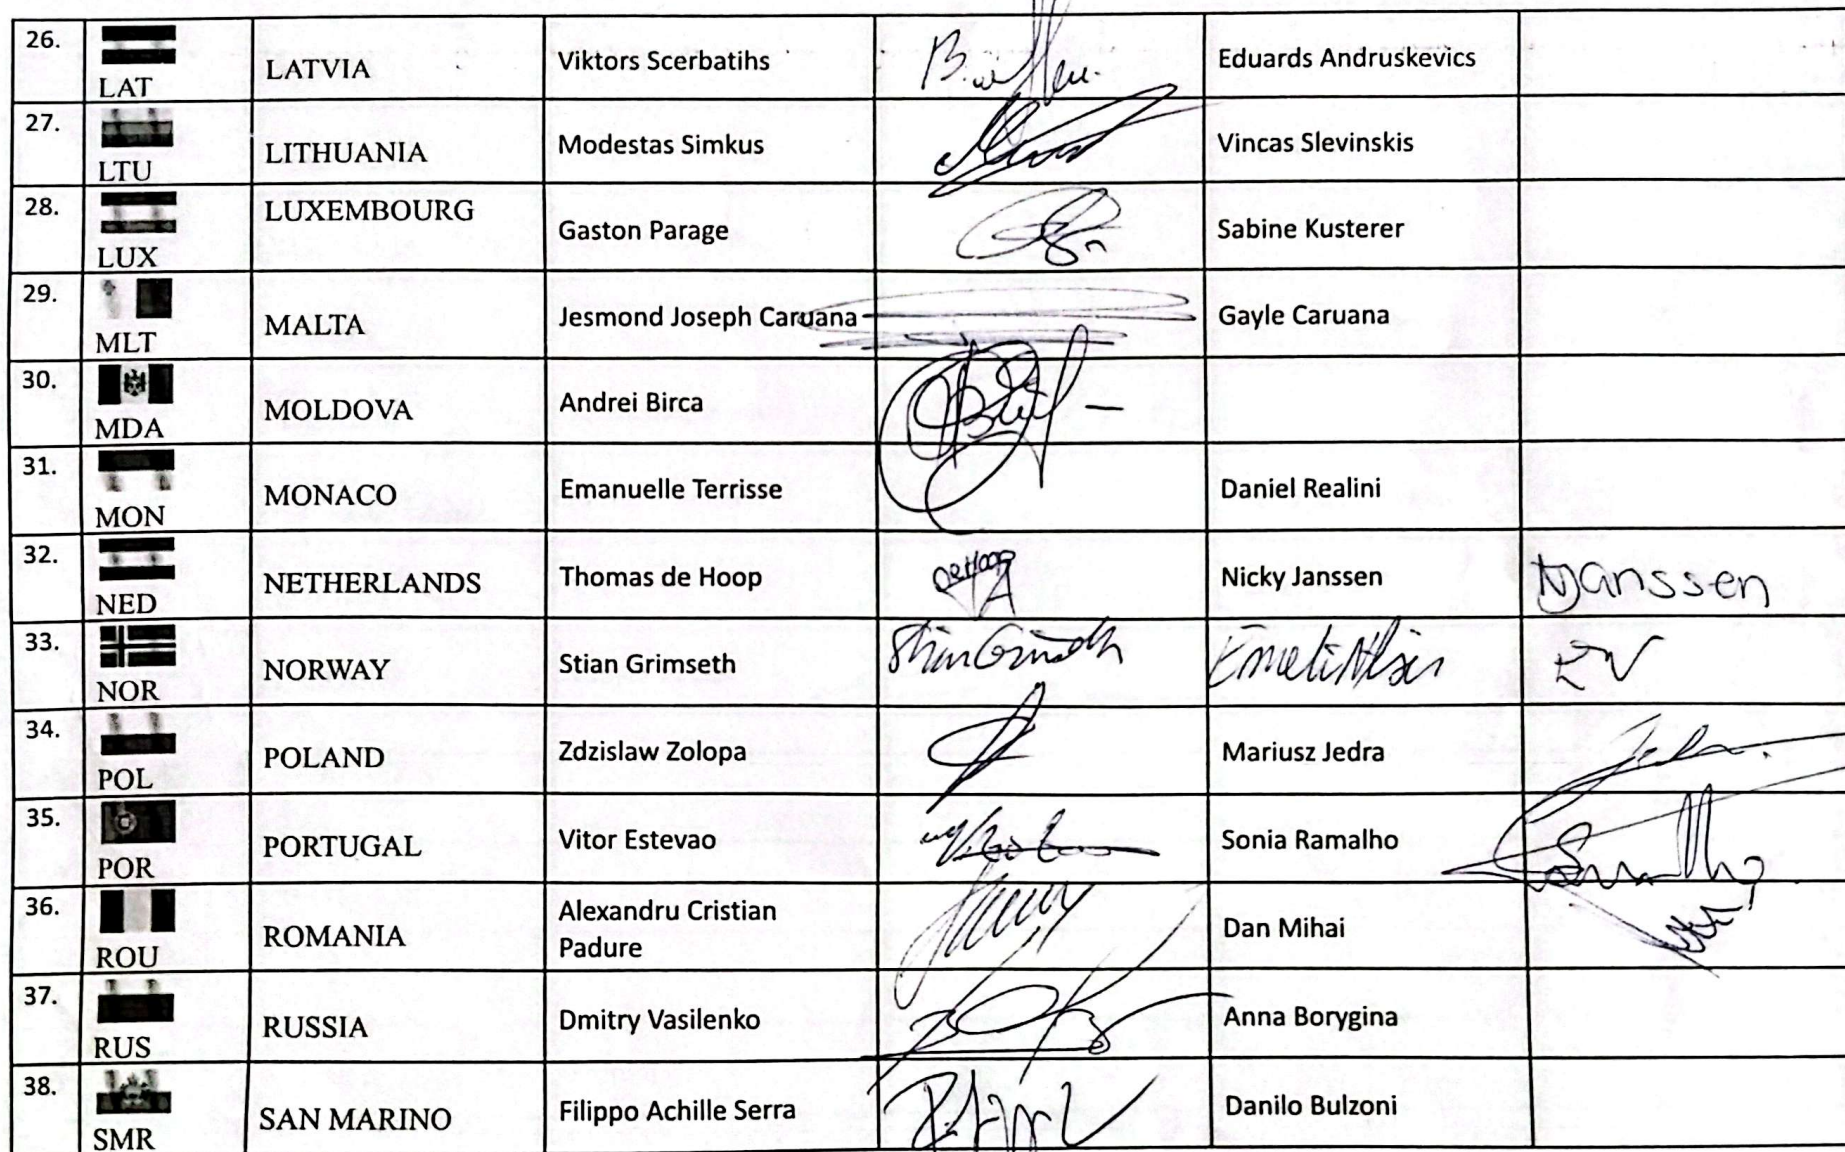 26.
LAT
LATVIA
Viktors Scerbatihs
Eduards Andruskevics
27.
LTU
LITHUANIA
Modestas Simkus
Vincas Slevinskis
28.
LUX
LUXEMBOURG
Gaston Parage
Sabine Kusterer
29.
MLT
MALTA
Jesmond Joseph Caruana
Gayle Caruana
30.
MDA
MOLDOVA
Andrei Birca
31.
MON
MONACO
Emanuelle Terrisse
Daniel Realini
32.
NED
NETHERLANDS
Thomas de Hoop
de Hoop
Nicky Janssen
NJanssen
33.
NOR
NORWAY
Stian Grimseth
Stian Grimseth
EN
34.
POL
POLAND
Zdzislaw Zolopa
Mariusz Jedra
35.
POR
PORTUGAL
Vitor Estevao
Sonia Ramalho
36.
ROU
ROMANIA
Alexandru Cristian
Padure
Dan Mihai
37.
RUS
RUSSIA
Dmitry Vasilenko
Anna Borygina
38.
SMR
SAN MARINO
Filippo Achille Serra
Danilo Bulzoni